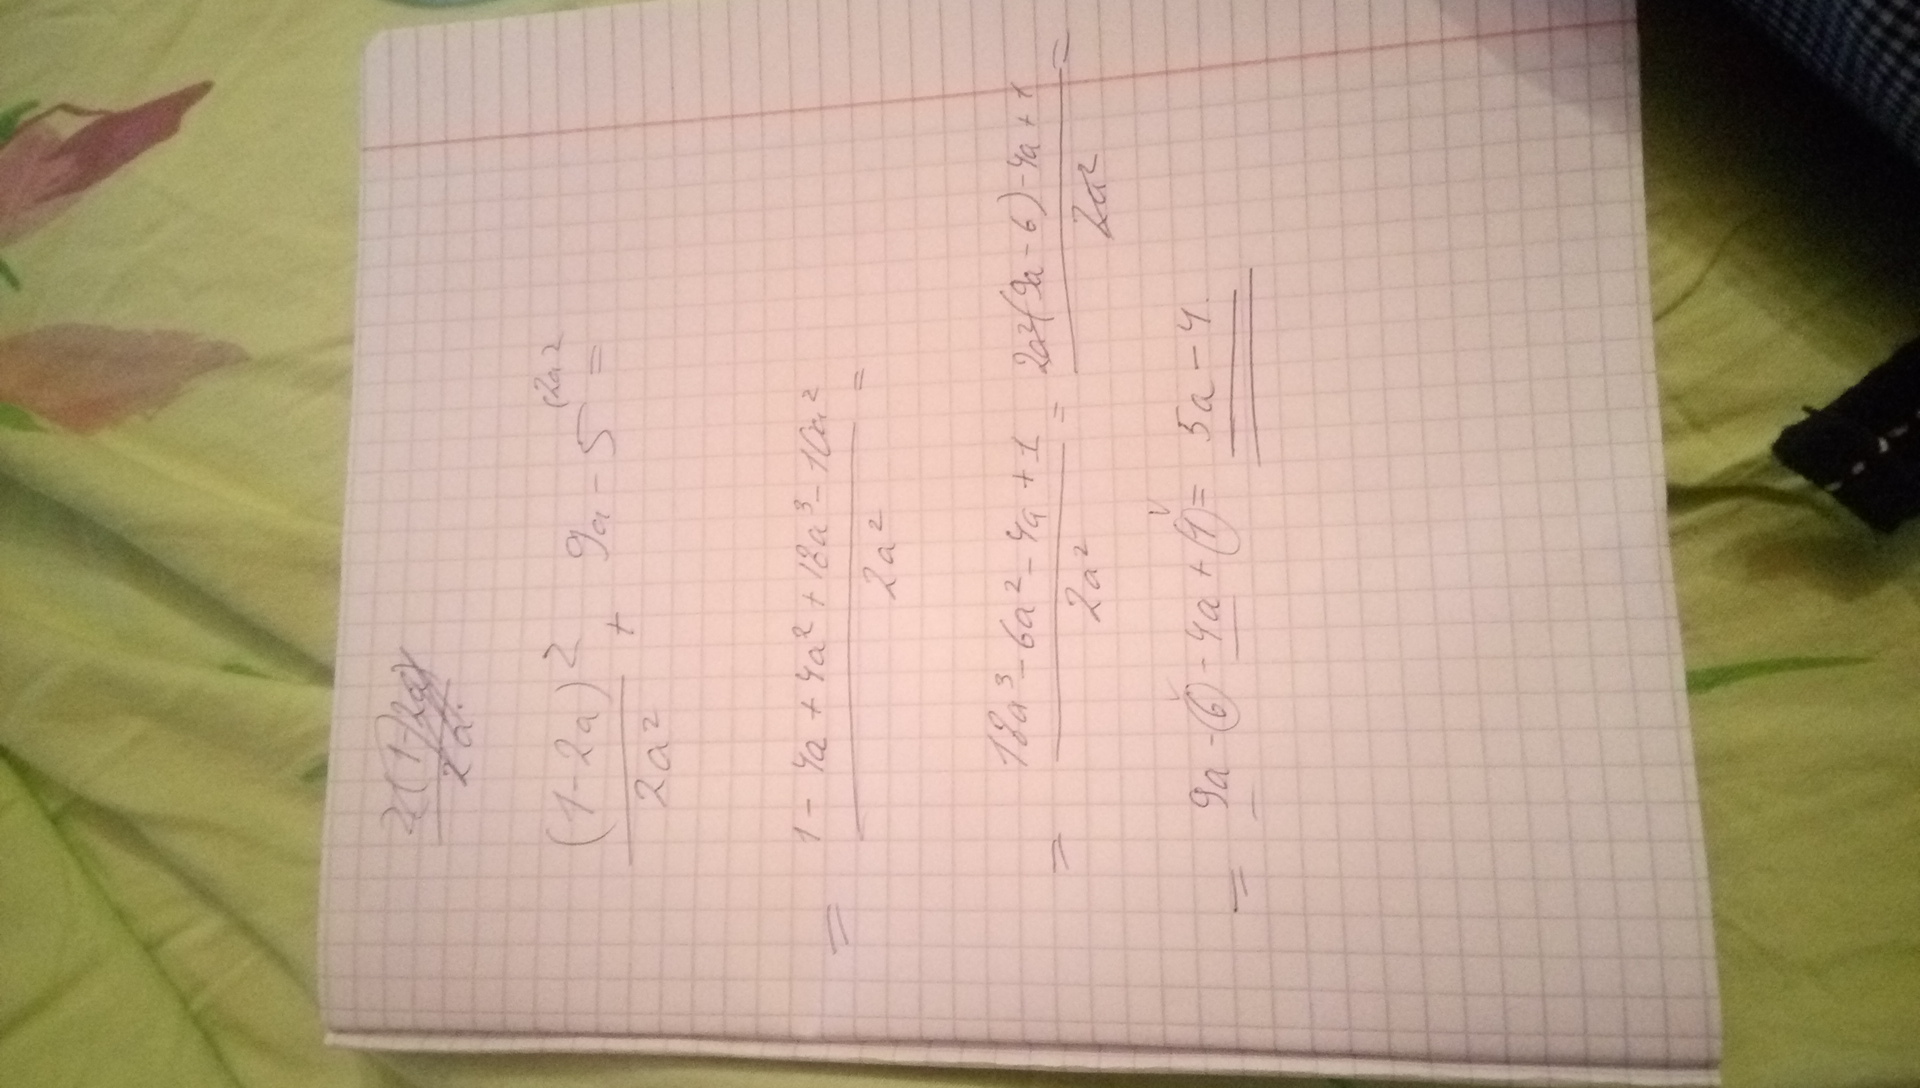 (1-2a)²/2a² + 9a - 5 (2a² =
= (1 - 4a + 4a² + 18a³ - 10a²)/2a² =
= (18a³ - 6a² - 4a + 1)/2a² = (2a²(9a - 6) - 4a + 1)/2a² =
= 9a - (6) - 4a + (1) = 5a - 4